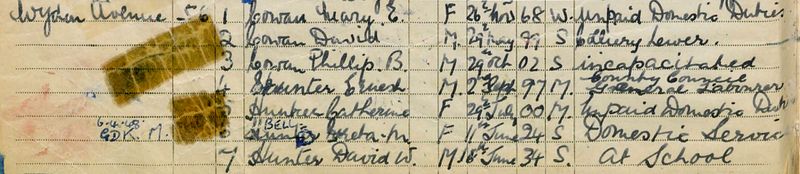 Wydon Avenue 56 1 Cowan Mary E. F 26th Nov 68 W. Unpaid Domestic Dutie
2 Cowan David M 29 May 99 S Colliery Hewer.
3 Cowan Phillip. B. M 29 Oct 02 S incapacitated
4 Hunter Ernest M 2nd Sept 97 M. County Council General Labourer
5 Hunter Catherine F 26 July 00 M. Unpaid Domestic Duti
6.4.48. GDK. M. BELL
6 Hunter Greta. M. F 11th June 24 S Domestic Servic
7 Hunter David W. M 18th June 34 S. At School